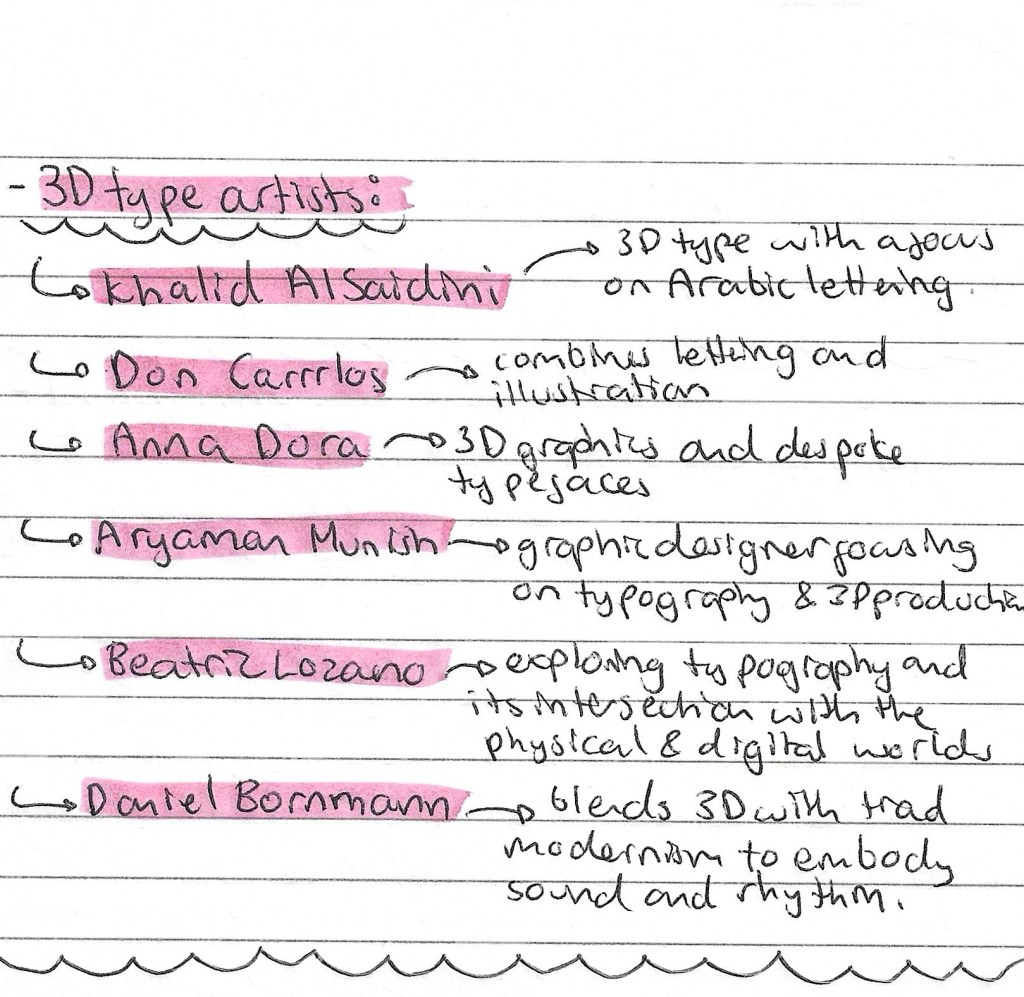 - 3D type artists:
Khalid AlSaidini → 3D type with a focus
on Arabic lettering.
Don Carrrlos → combines lettering and
illustration
Anna Dora → 3D graphics and despoke
typefaces
Aryaman Munish → graphic designer focusing
on typography & 3D production
Beatriz Lozano → exploring typography and
its intersection with the
physical & digital worlds
Daniel Bornmann → blends 3D with trad
modernism to embody
sound and rhythm.